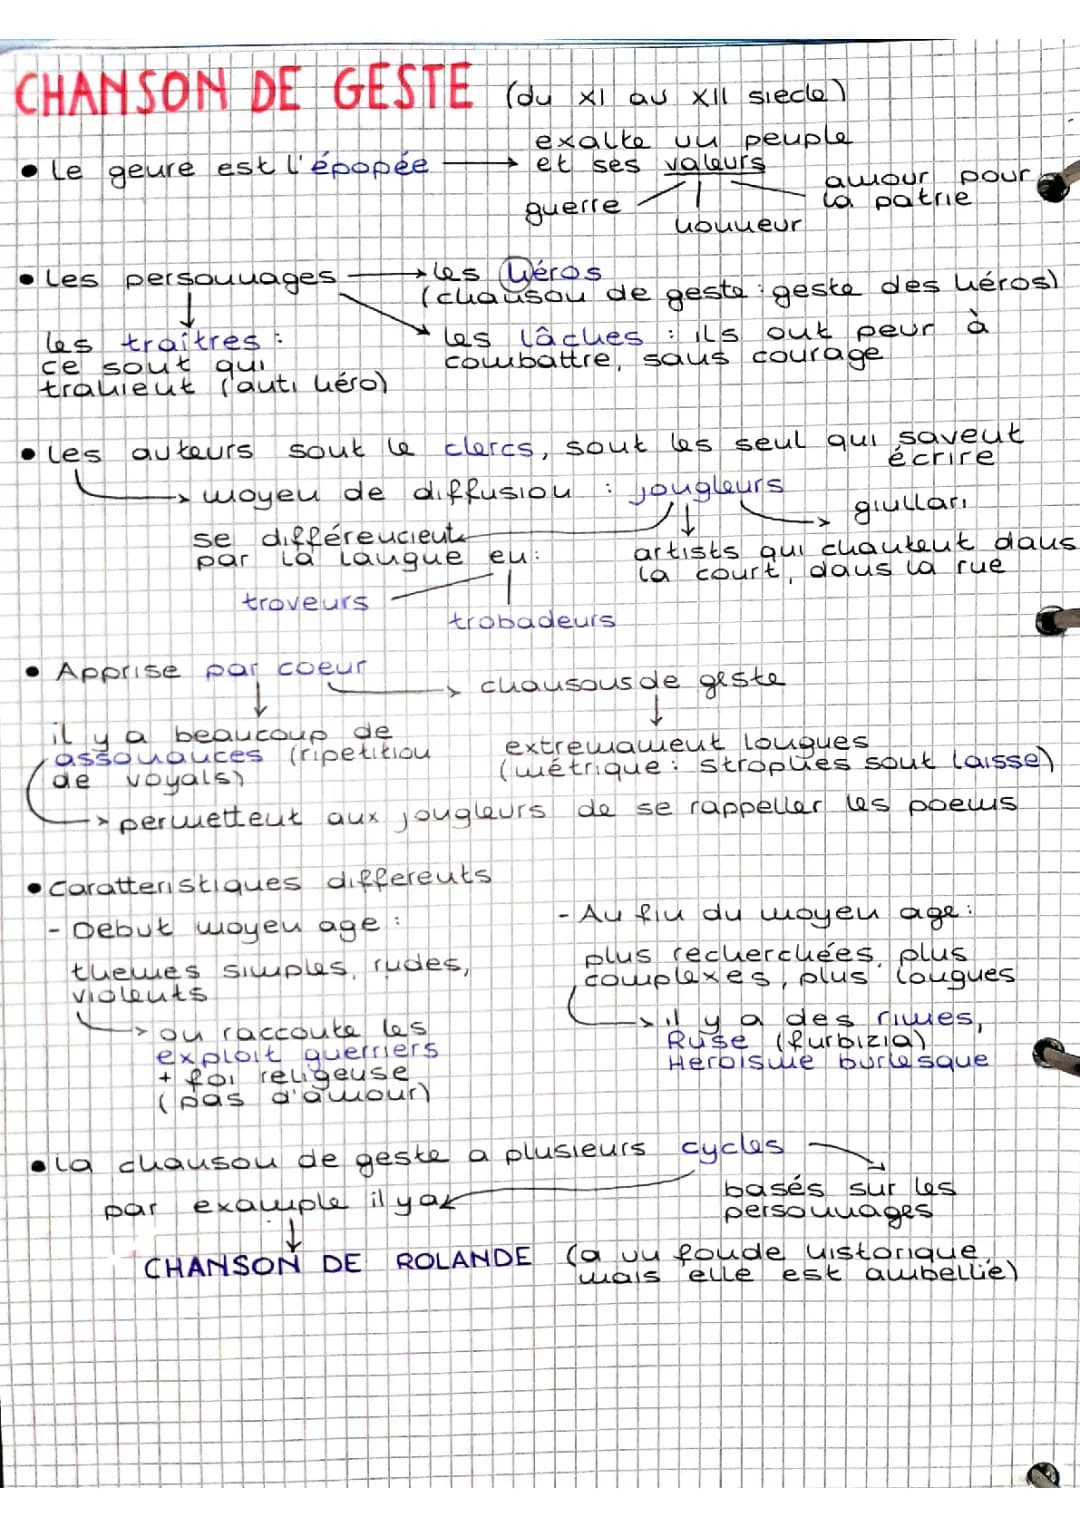 CHANSON DE GESTE (du XI au XII siecle)
• Le genre est l'épopée → exalte un peuple
et ses valeurs
guerre
honneur
amour pour
la patrie
• Les personnages → les héros
(chanson de geste : geste des héros)
les traîtres :
ce sont qui
trahient (anti héro)
les lâches : ils ont peur à
combattre, sans courage
• Les auteurs sont le clercs, sont les seul qui savent
écrire
→ moyen de diffusion : jougleurs
→ giullari
se différencient
par la langue en:
troveurs
trobadeurs
artists qui chantent dans
la court, dans la rue
• Apprise par coeur
→ chansons de geste
il y a beaucoup de
assonances (ripetition
de voyals)
extremament longues
(métrique : strophes sont laisse)
→ permettent aux jougleurs de se rappeller les poems
• Caratteristiques differents
- Debut moyen age :
themes simples, rudes,
violents
→ on raccounte les
exploit guerriers
+ foi religeuse
(pas d'amour)
- Au fin du moyen age :
plus recherchées, plus
complexes, plus longues
→ il y a des rimes,
Ruse (furbizia)
Heroisme burlesque
• La chanson de geste a plusieurs cycles
basés sur les
personnages
par example il ya
CHANSON DE ROLANDE (a un fonde historique,
mais elle est ambellie)